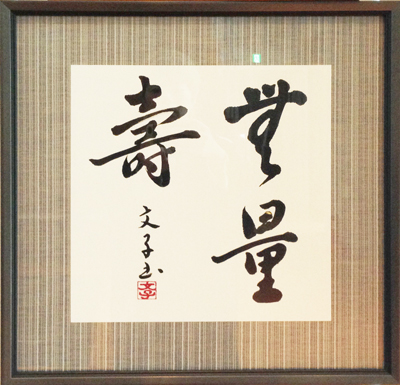 無量
壽
文子書